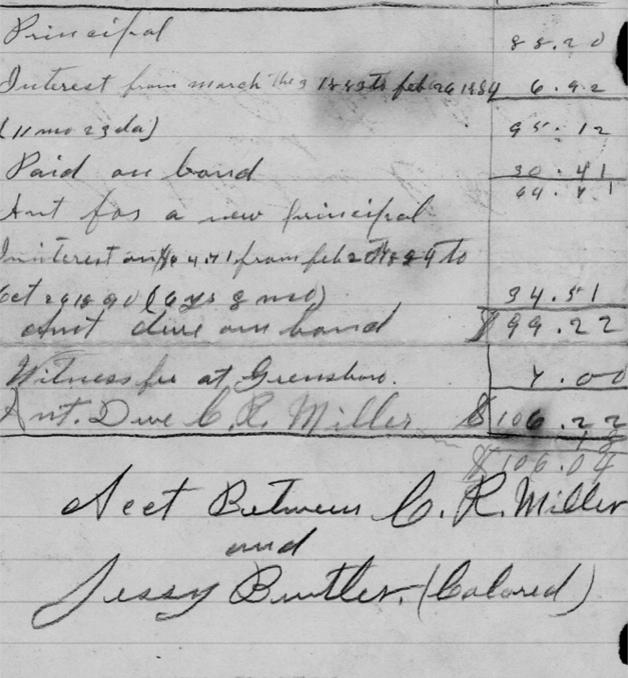 Principal 88.20
Interest from march the 3 1883 to feb 26 1884 6.92
(11 mo 23 da) 95.12
Paid on bond 30.41
64.71
Amt for a new principal
Inniterest on $64.71 from feb 26 1884 to
oct 26 1890 (6 ys 8 mo) 34.51
Amt due on bond $99.22
Witness fee at Greensboro. 7.00
Amt. Due C. R. Miller $106.22
18
$106.04
Acct Between C. R. Miller
and
Jessy Buttler. (Colored)